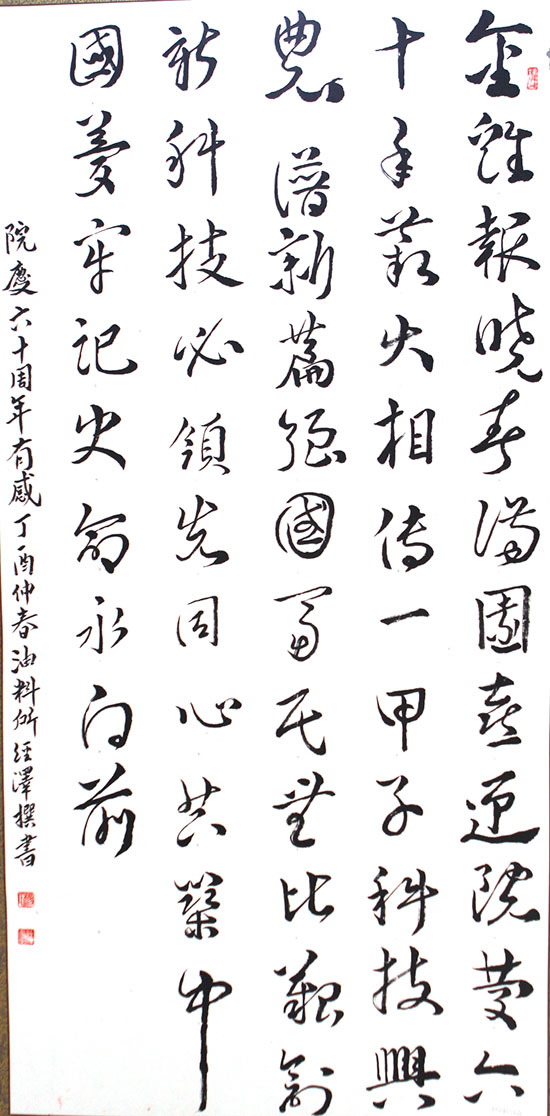 金雞報曉春滿園喜迎院慶六
十年薪火相传一甲子科技興
農譜新篇強國富民無比艱創
新科技必領先同心共築中
國夢牢記史命永向前
院慶六十周年有感丁酉仲春油料所经澤撰書